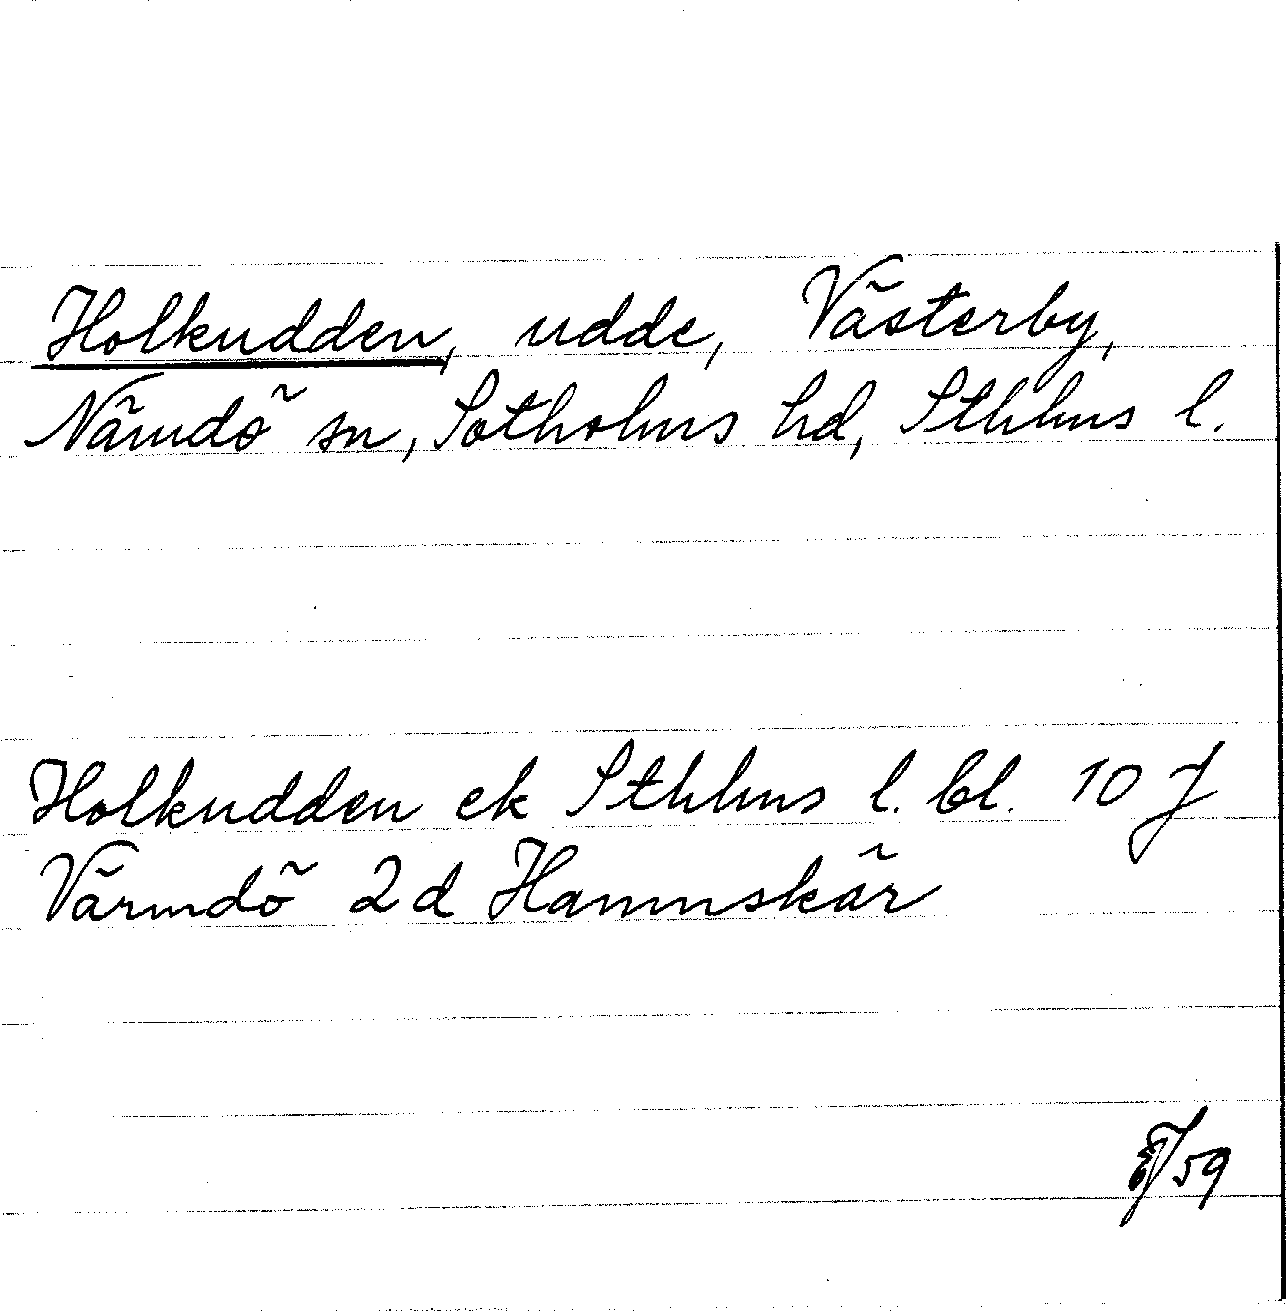 Holkudden, udde, Västerby,
Nämdö sn, Sotholms hd, Sthlms l.
Holkudden ek Sthlms l. bl. 10 J
Värmdö 2d Hamnskär
/59